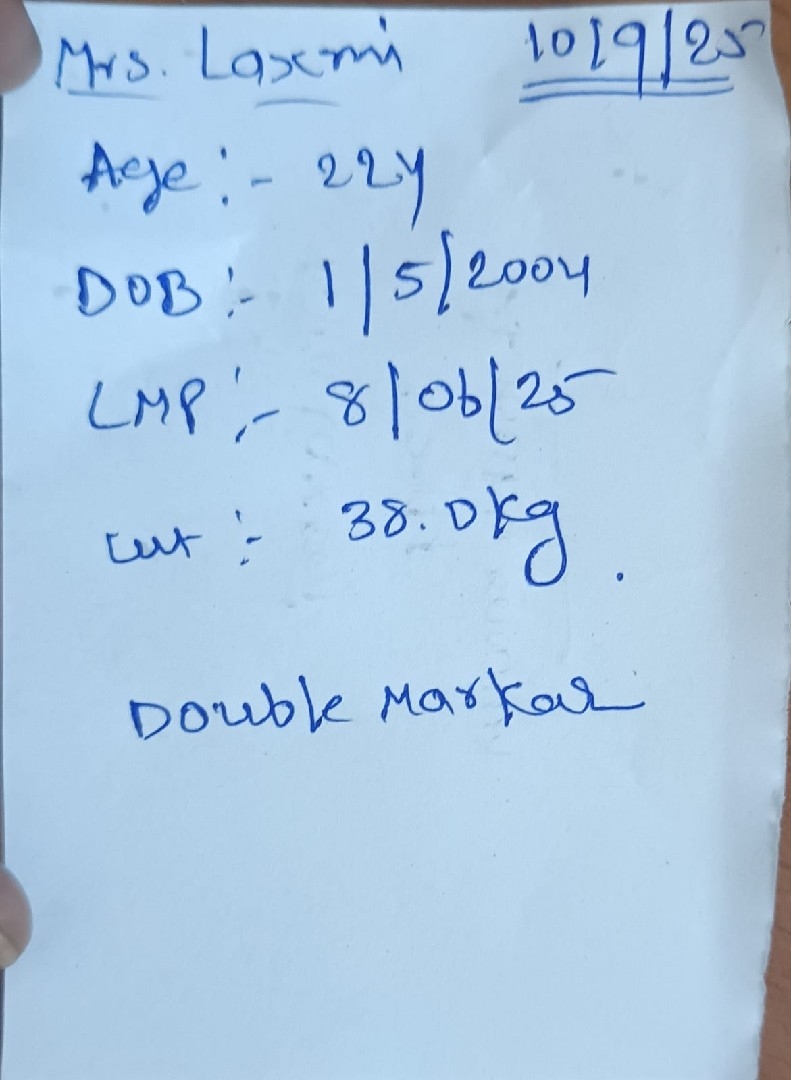 Mrs. Laxmi 10/9/25
Age :- 22y
DOB :- 1/5/2004
LMP :- 8/06/25
wt :- 38.0 kg.
Double Markar